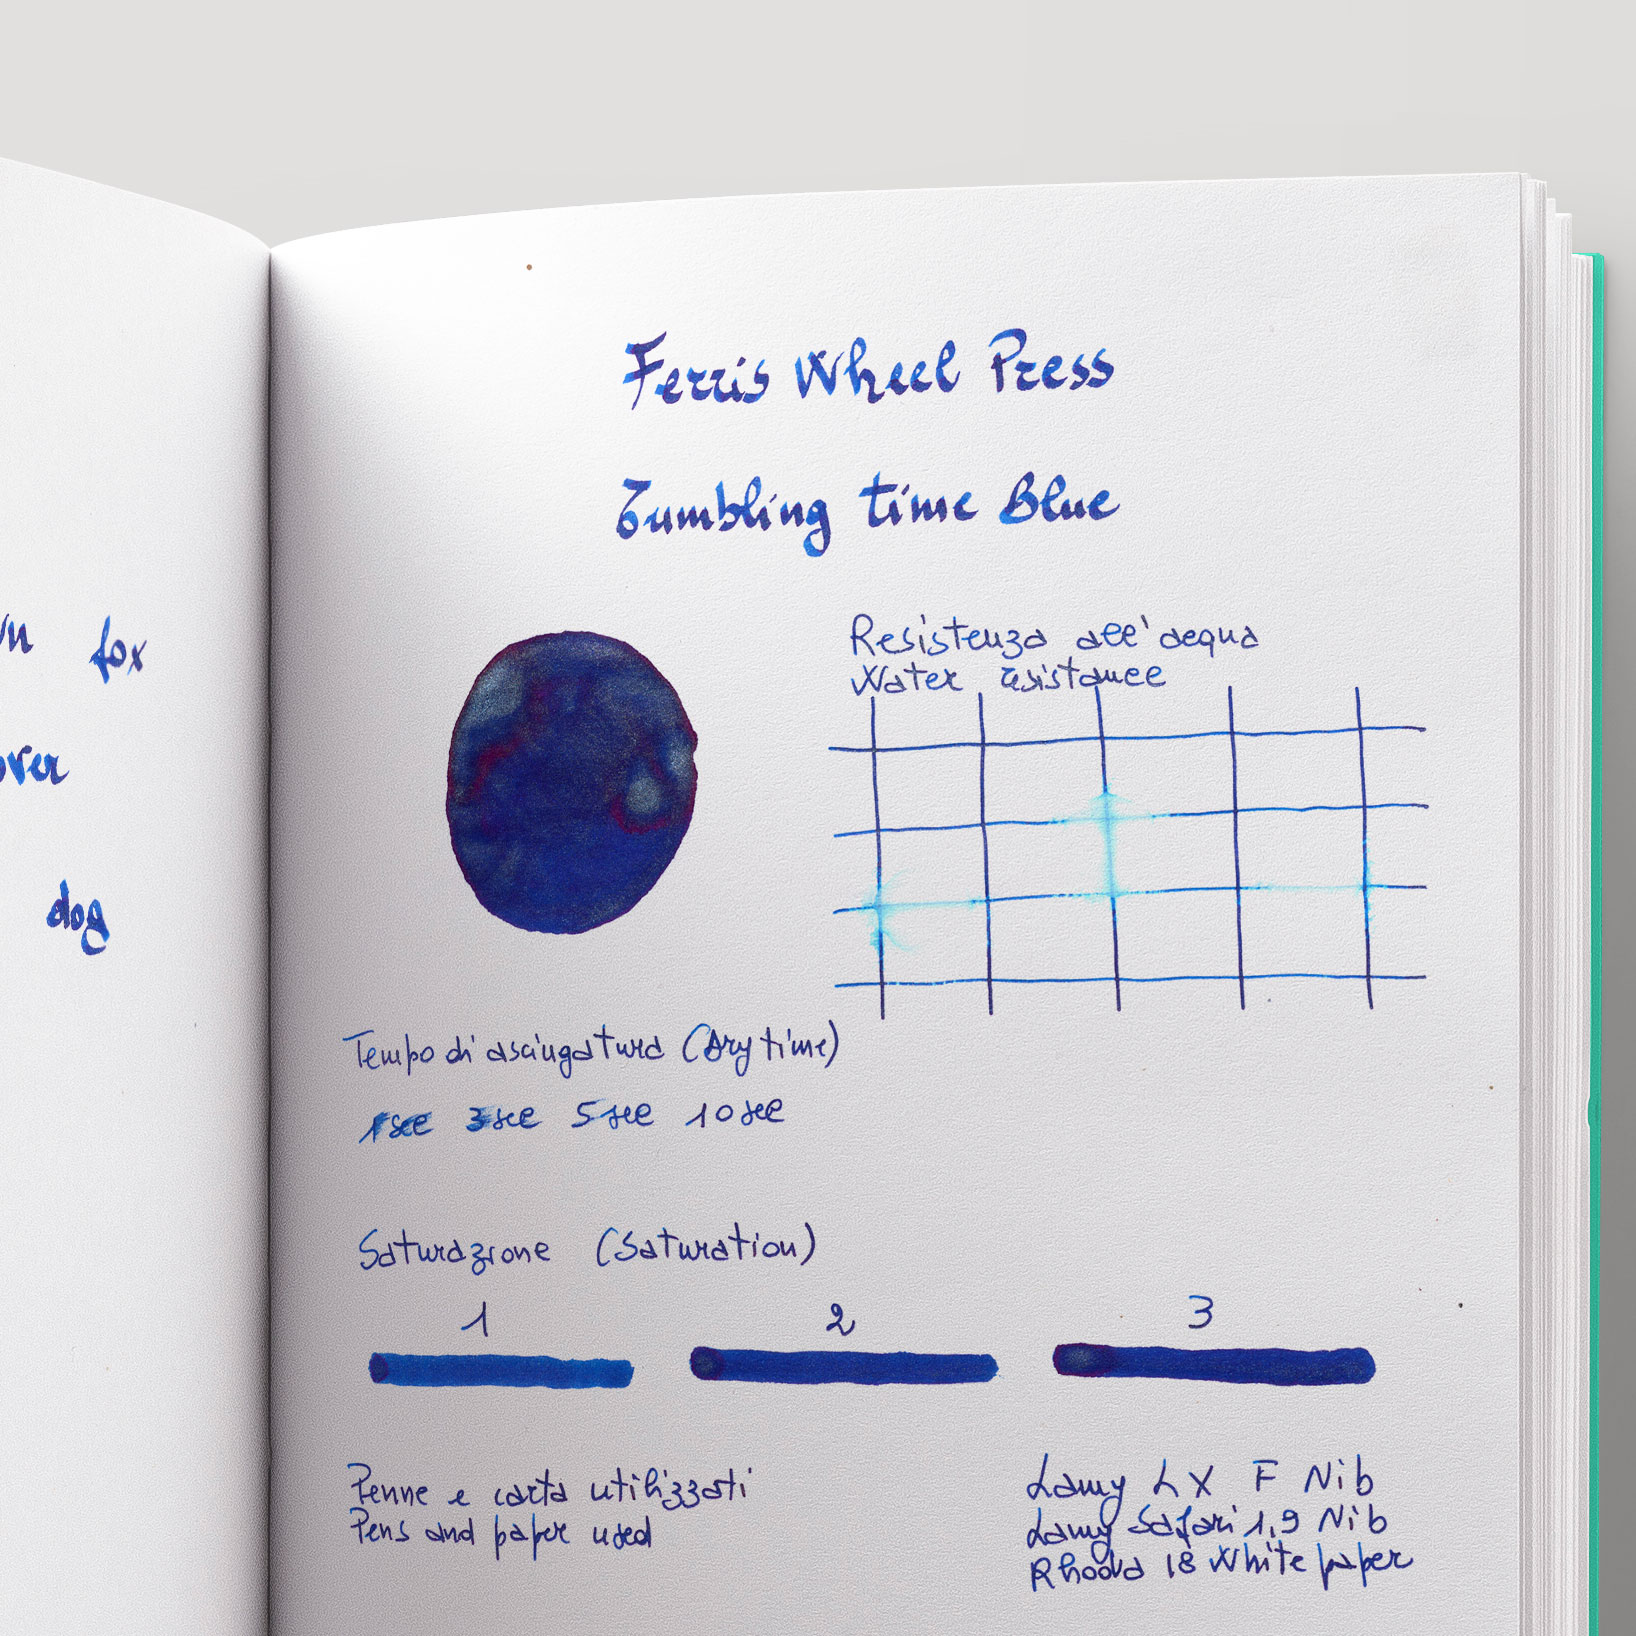 wn fox
over
dog
Ferris Wheel Press
Tumbling time Blue
Resistenza all'acqua
Water resistance
Tempo di asciugatura (Dry time)
1sec 3sec 5sec 10sec
Saturazione (Saturation)
1 2 3
Penne e carta utilizzati
Pens and paper used
Lamy LX F Nib
Lamy Safari 1,9 Nib
Rhodia 18 White paper